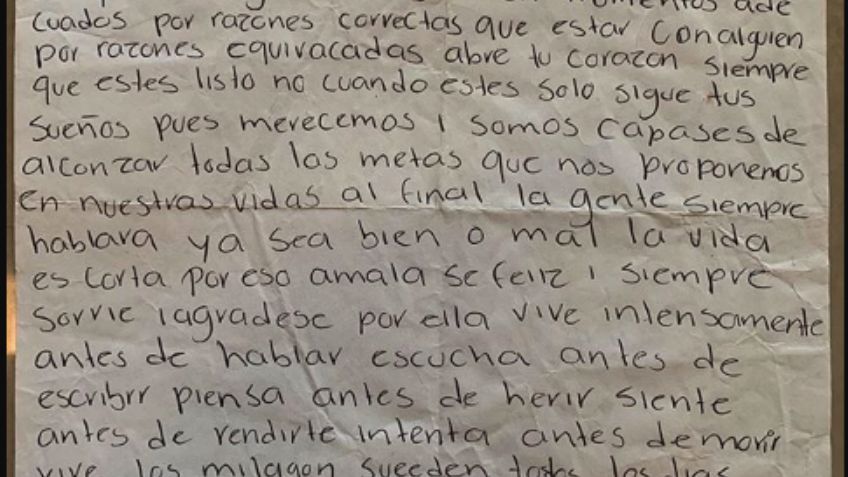 ade
cuados por razones correctas que estar con alguien
por razones equivacadas abre tu corazon siempre
que estes listo no cuando estes solo sigue tus
sueños pues merecemos i somos capases de
alconzar todas las metas que nos proponemos
en nuestras vidas al final la gente siempre
hablara ya sea bien o mal la vida
es corta por eso amala se feliz i siempre
sorrie iagradese por ella vive intensamente
antes de hablar escucha antes de
escribir piensa antes de herir siente
antes de rendirte intenta antes de morir
vive los milagon sueeden todos los dias